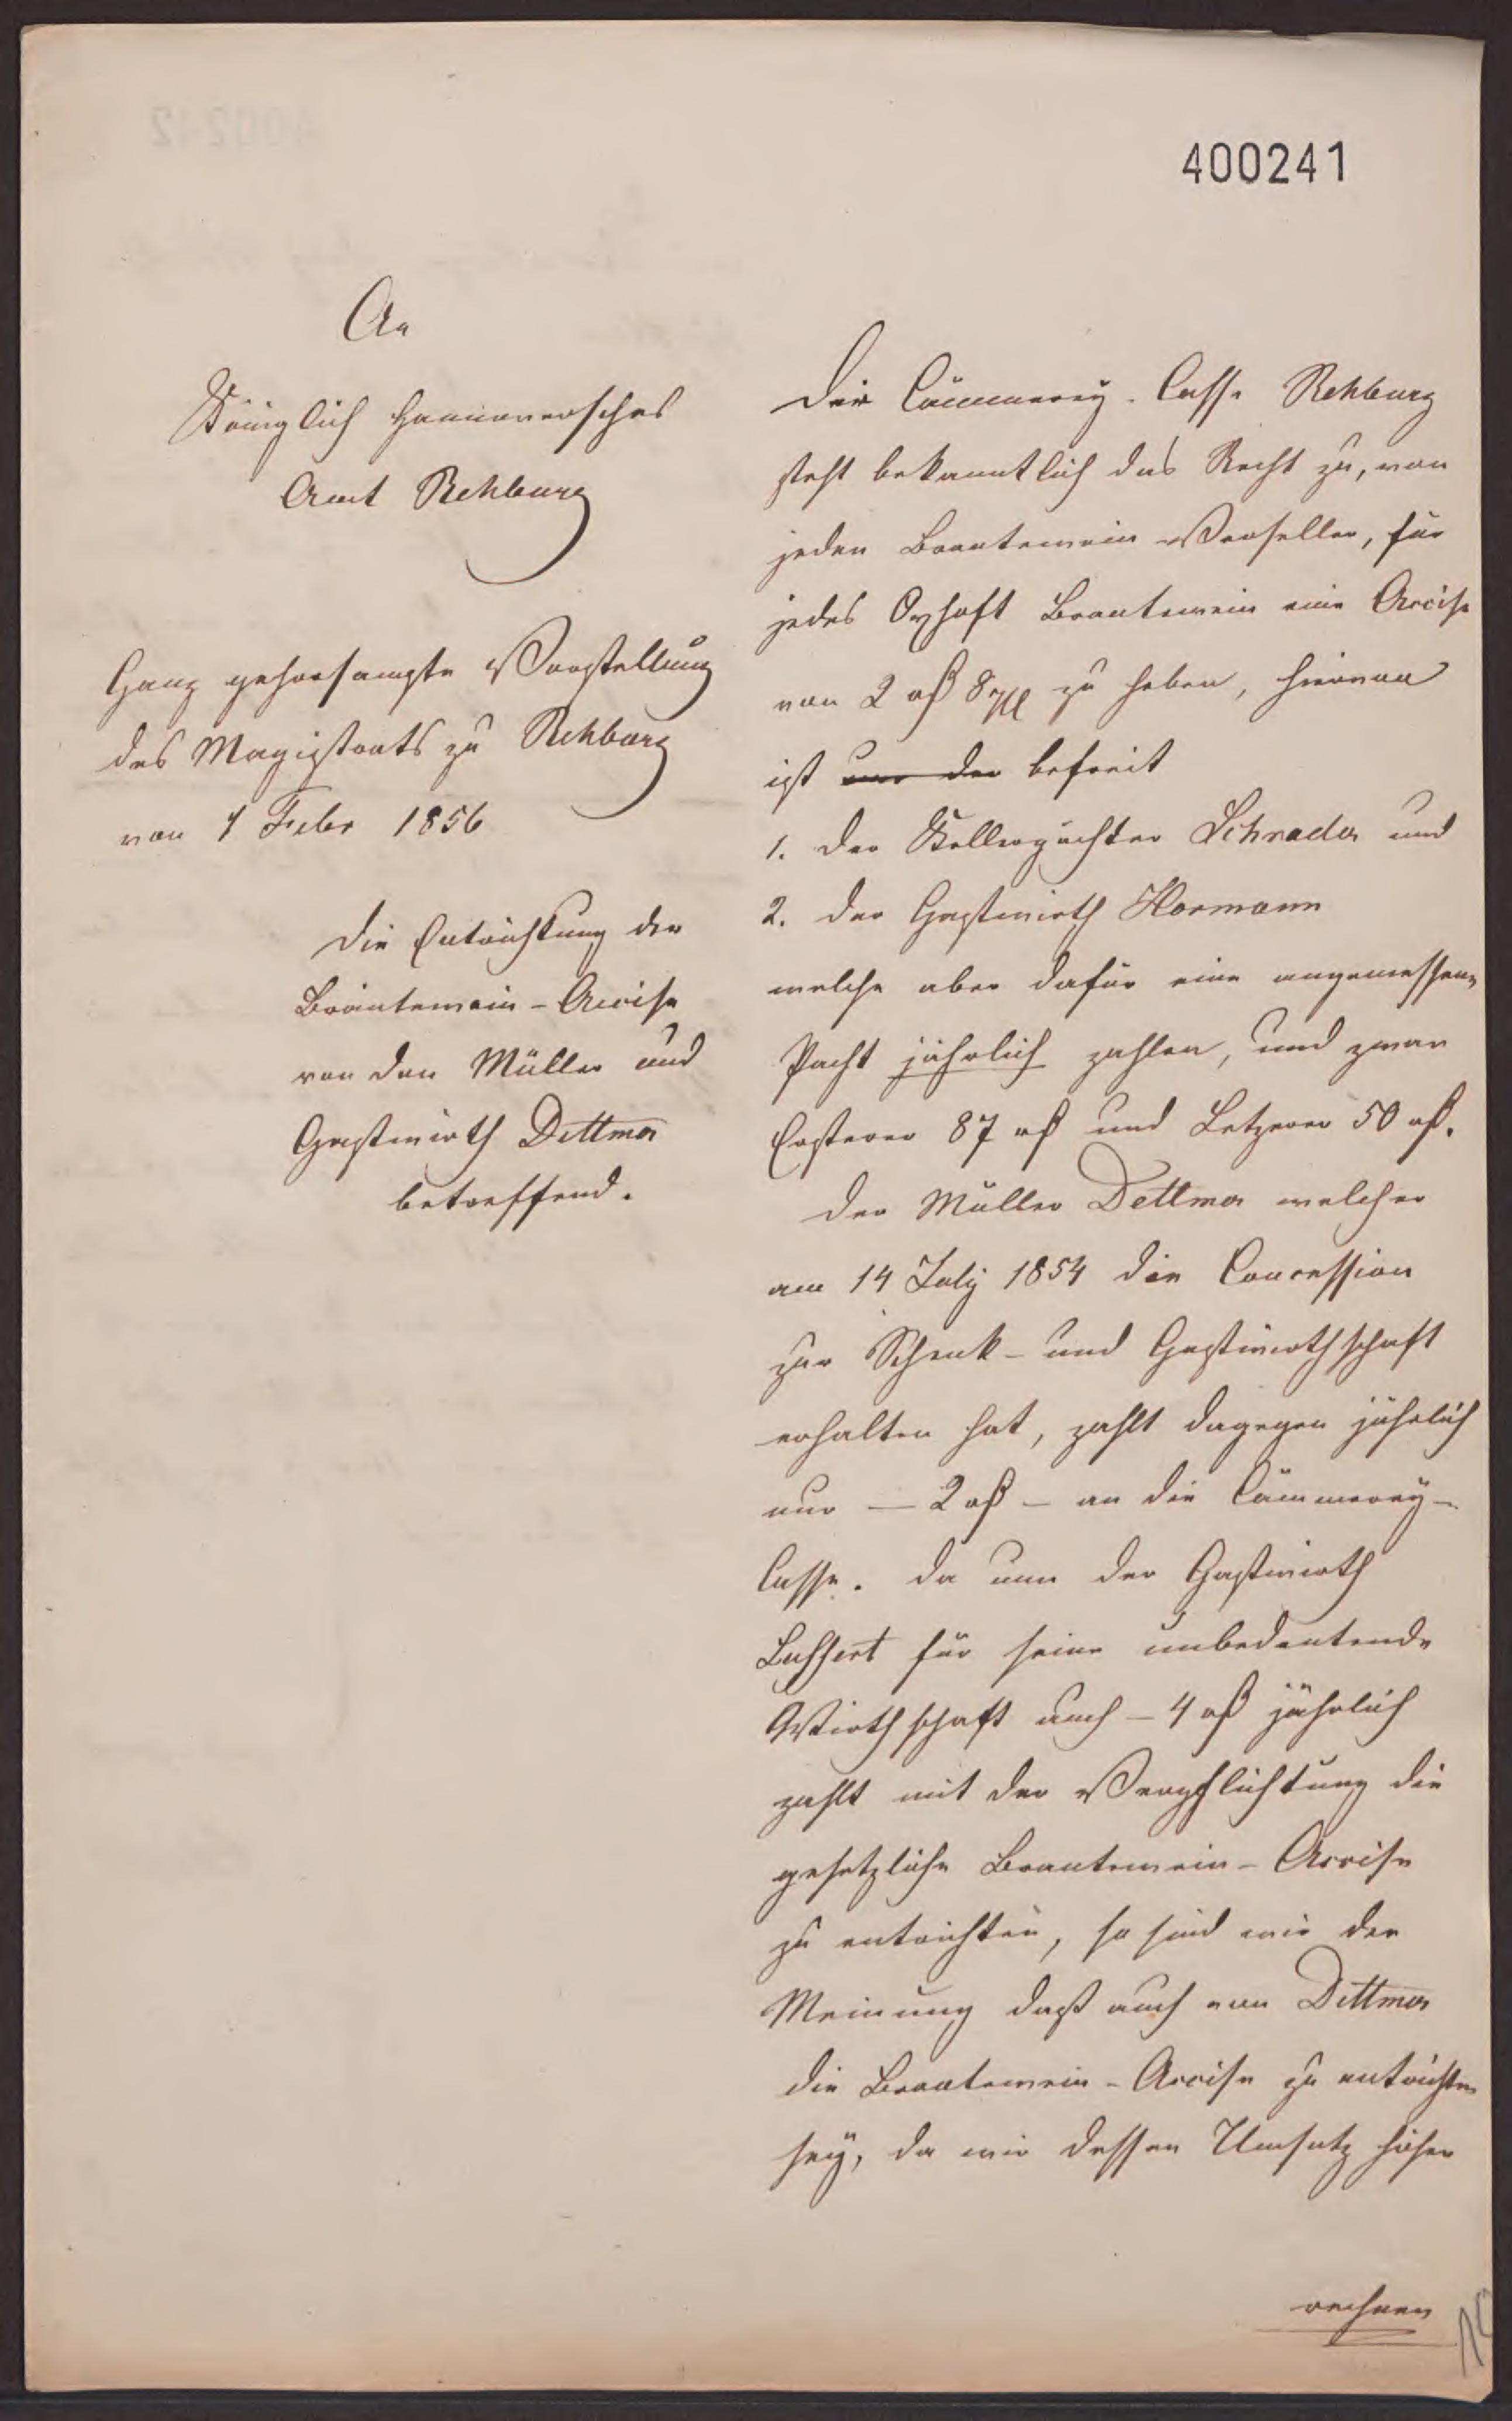 400241
An
Königlich Hannoversches
Amt Rehburg
Ganz gehorsamste Vorstellung
des Magistrats zu Rehburg
von 1 Febr 1856
Die Entrichtung der
Brantewein-Accise
von den Müller und
Gastwirth Dettmer
betreffend.
Der Cämmerey-Casse Rehburg
steht bekanntlich das Recht zu, von
jeden Brantewein-Verseller, für
jedes Oxhoft Brantewein eine Accise
von 2 rß 8 zu heben, hiervon
ist nur der befreit
1. der Kellerpächter Schrader und
2. der Gastwirth Hormann
welche aber dafür eine angemessene
Pacht jährlich zahlen, und zwar
Ersterer 87 rß und Letzerer 50 rß.
Der Müller Dettmer welcher
am 14 July 1854 die Concession
zur Schenk- und Gastwirthschaft
erhalten hat, zahlt dagegen jährlich
nur — 2 rß — an die Cämmerey-
Casse. Da nun der Gastwirth
für seine unbedeutende
Wirthschaft auch — 4 rß jährlich
zahlt mit der Verpflichtung die
gesetzliche Brantewein-Accise
zu entrichten, so sind wir der
Meinung daß auch von Dettmer
die Brantewein-Accise zu entrichten
sey, da wir dessen Umsatz höher
rechnen